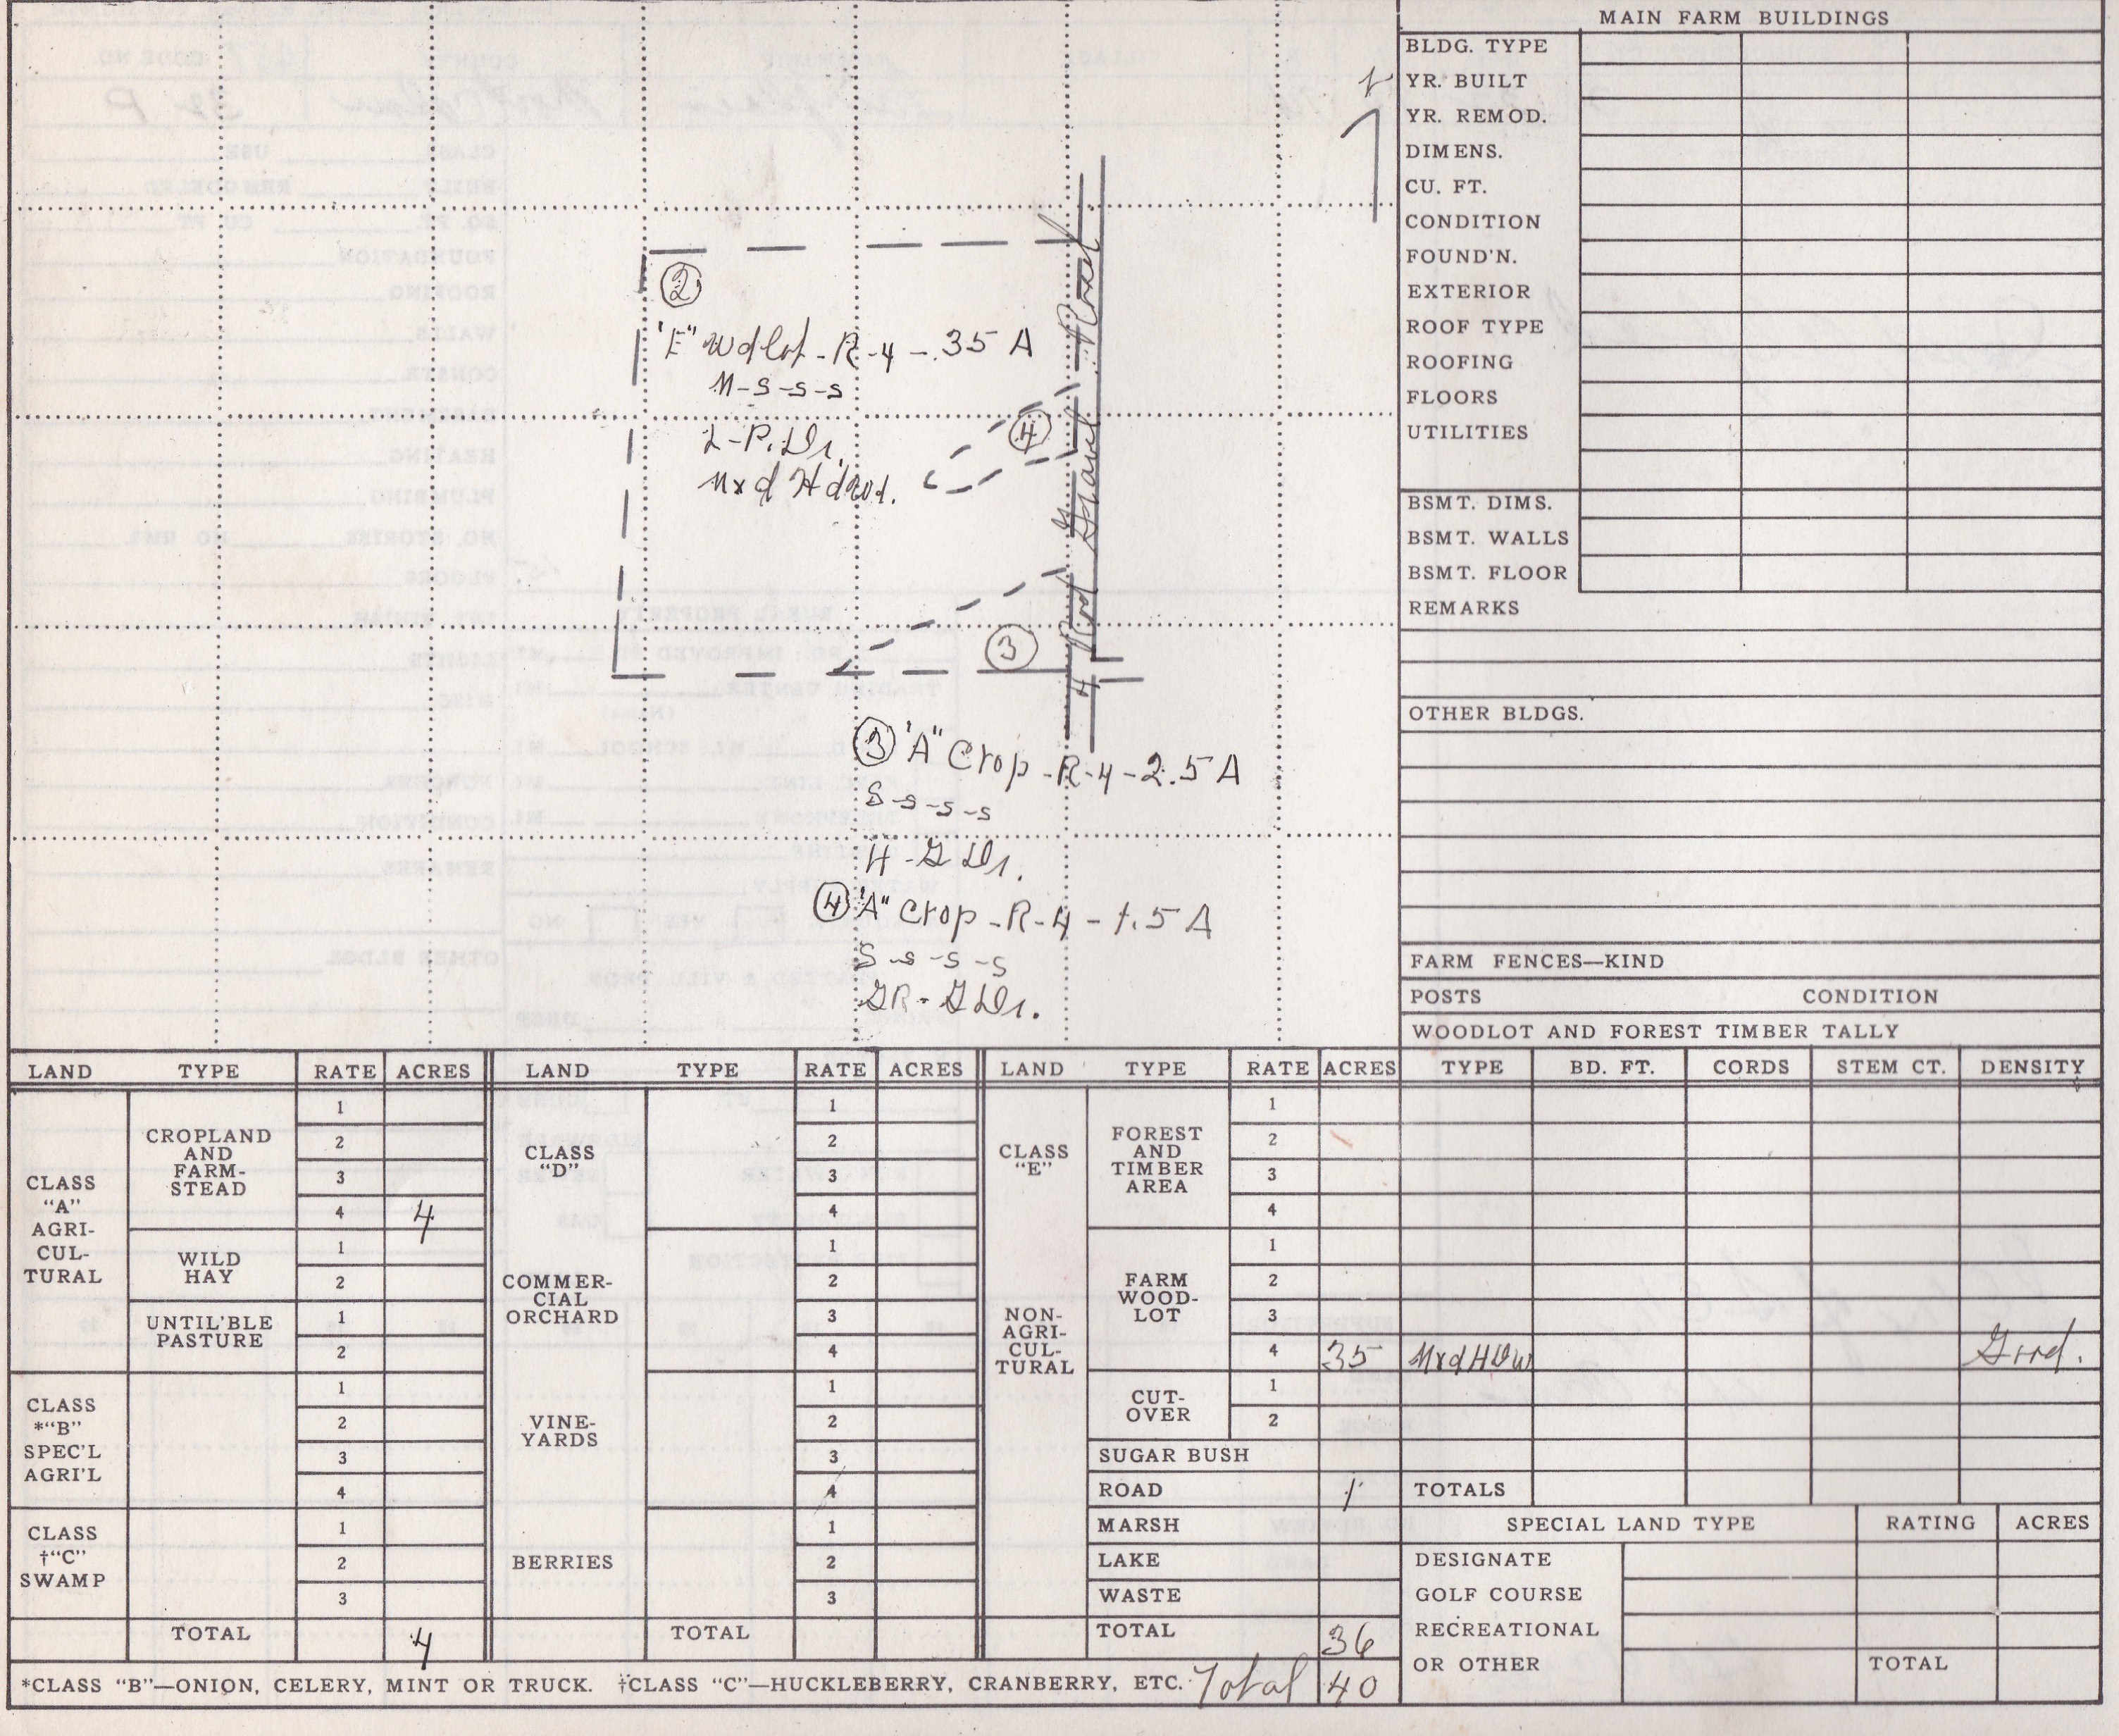 ②
"E" Wdlot - R-4 - 35 A
M-s-s-s
L-P. Dr.
Mxd Hdwd.
④
③
4 Rod Gravel Road
③ "A" Crop - R-4 - 2.5 A
S-s-s-s
H - G Dr.
④ "A" Crop - R-4 - 1.5 A
S-s-s-s
GR - G Dr.
MAIN FARM BUILDINGS
BLDG. TYPE
YR. BUILT
YR. REMOD.
DIMENS.
CU. FT.
CONDITION
FOUND'N.
EXTERIOR
ROOF TYPE
ROOFING
FLOORS
UTILITIES
BSMT. DIMS.
BSMT. WALLS
BSMT. FLOOR
REMARKS
OTHER BLDGS.
FARM FENCES—KIND
POSTS CONDITION
WOODLOT AND FOREST TIMBER TALLY
LAND TYPE RATE ACRES LAND TYPE RATE ACRES LAND TYPE RATE ACRES TYPE BD. FT. CORDS STEM CT. DENSITY
CLASS
"A"
AGRI-
CUL-
TURAL
CROPLAND
AND
FARM-
STEAD
1
2
3
4 4
WILD
HAY
1
2
UNTIL'BLE
PASTURE
1
2
CLASS
*"B"
SPEC'L
AGRI'L
1
2
3
4
CLASS
†"C"
SWAMP
1
2
3
TOTAL 4
CLASS
"D"
1
2
3
4
COMMER-
CIAL
ORCHARD
1
2
3
4
VINE-
YARDS
1
2
3
4
BERRIES
1
2
3
TOTAL
CLASS
"E"
NON-
AGRI-
CUL-
TURAL
FOREST
AND
TIMBER
AREA
1
2
3
4
FARM
WOOD-
LOT
1
2
3
4 35 MxdHDwd Good.
CUT-
OVER
1
2
SUGAR BUSH
ROAD 1
MARSH
LAKE
WASTE
TOTAL 36
TOTALS
SPECIAL LAND TYPE RATING ACRES
DESIGNATE
GOLF COURSE
RECREATIONAL
OR OTHER TOTAL
*CLASS "B"—ONION, CELERY, MINT OR TRUCK. †CLASS "C"—HUCKLEBERRY, CRANBERRY, ETC. Total 40